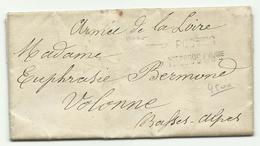 Armée de la Loire
Madame
Euphrasie Bermond
Volonne
Basses-Alpes